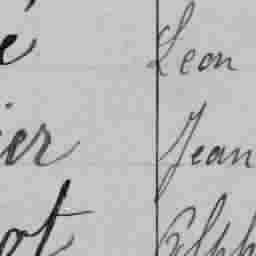 é Leon
ier Jean
ot Alph